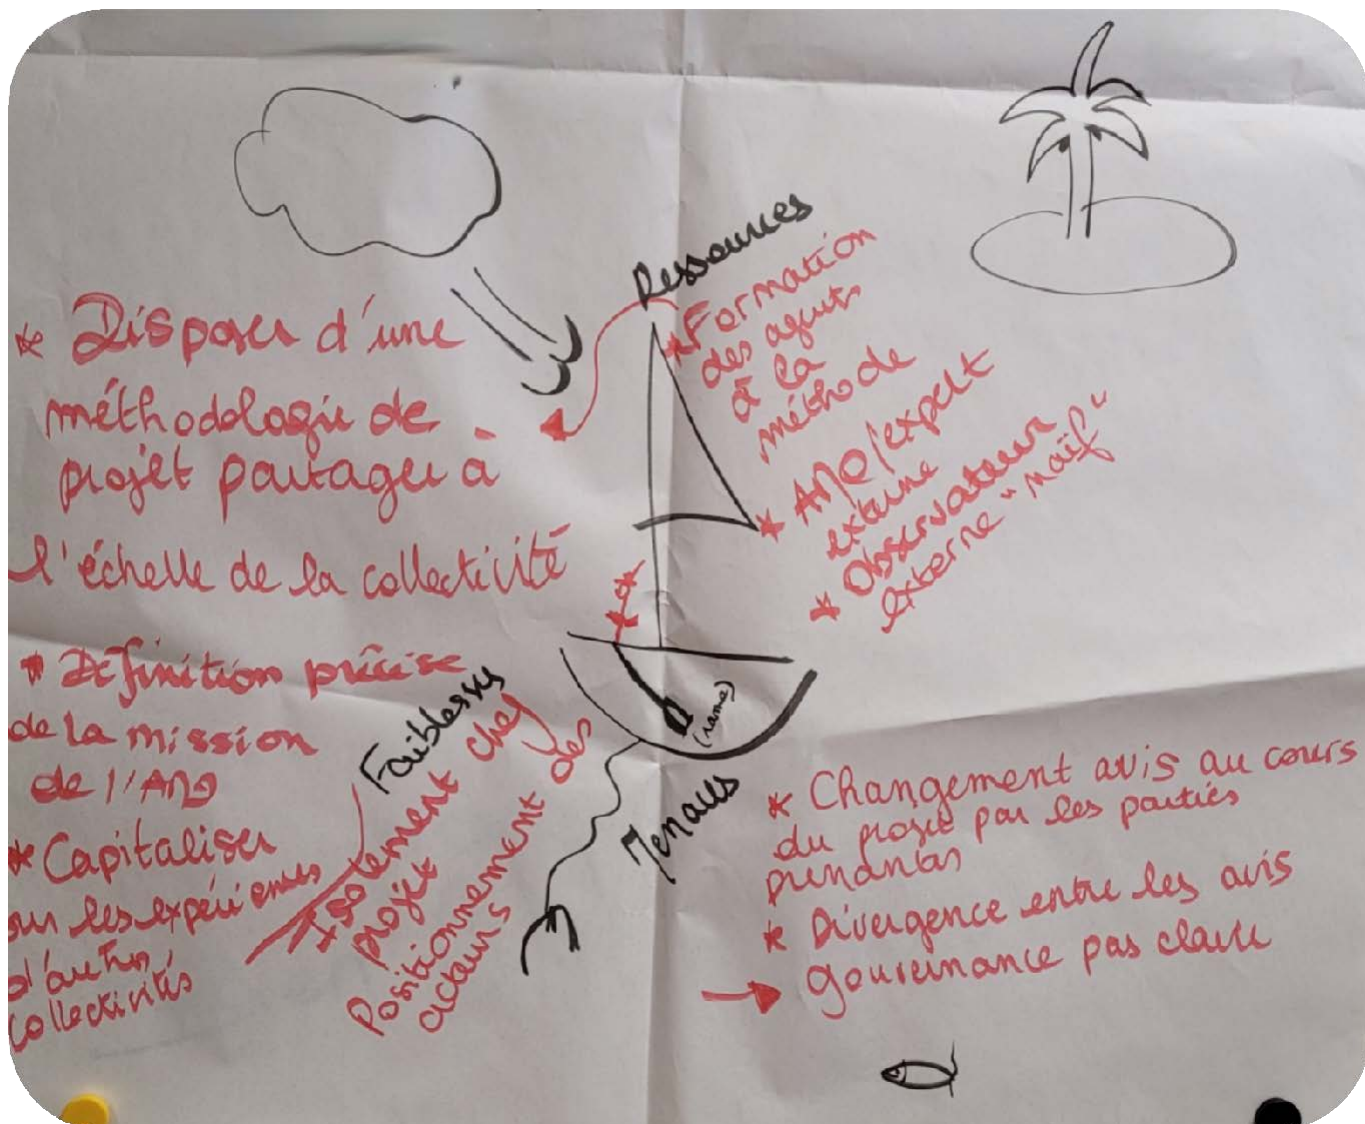 * Disposer d'une
méthodologie de
projet partagée à
l'échelle de la collectivité
* Définition précise
de la mission
de l'AMO
* Capitaliser
sur les expériences
d'autres
collectivités
Ressources
* Formation
des agents
à la
méthode
* AMO/expert
externe
* Observateur
externe "naïf"
(rame)
Faiblesses
Isolement chef
projet
Positionnement des
acteurs
Menaces
* Changement avis au cours
du projet par les parties
prenantes
* Divergence entre les avis
gouvernance pas claire